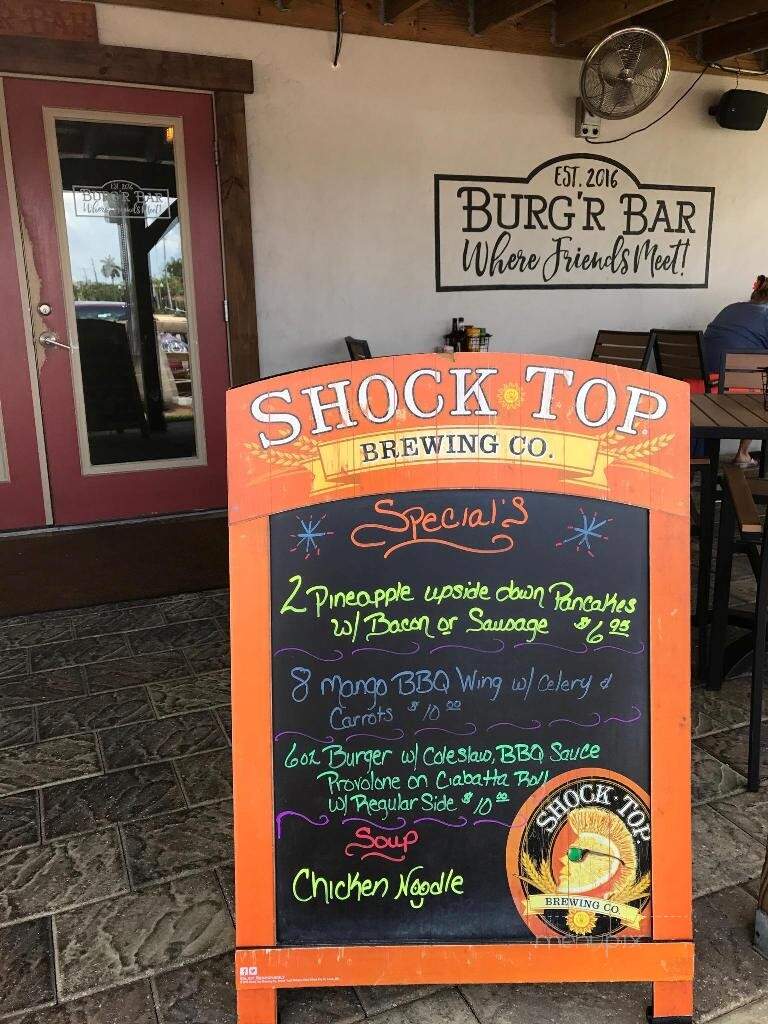 EST. 2016
BURG'R BAR
Where Friends Meet!
EST. 2016
BURG'R BAR
Where Friends Meet!
SHOCK TOP
BREWING CO.
Special's
2 Pineapple upside down Pancakes
w/ Bacon or Sausage $6.95
8 Mango BBQ Wing w/ Celery &
Carrots $10.00
6oz Burger w/ Coleslaw, BBQ Sauce
Provolone on Ciabatta Roll
w/ Regular Side $10.00
Soup
Chicken Noodle
SHOCK·TOP
BREWING CO.
menupix